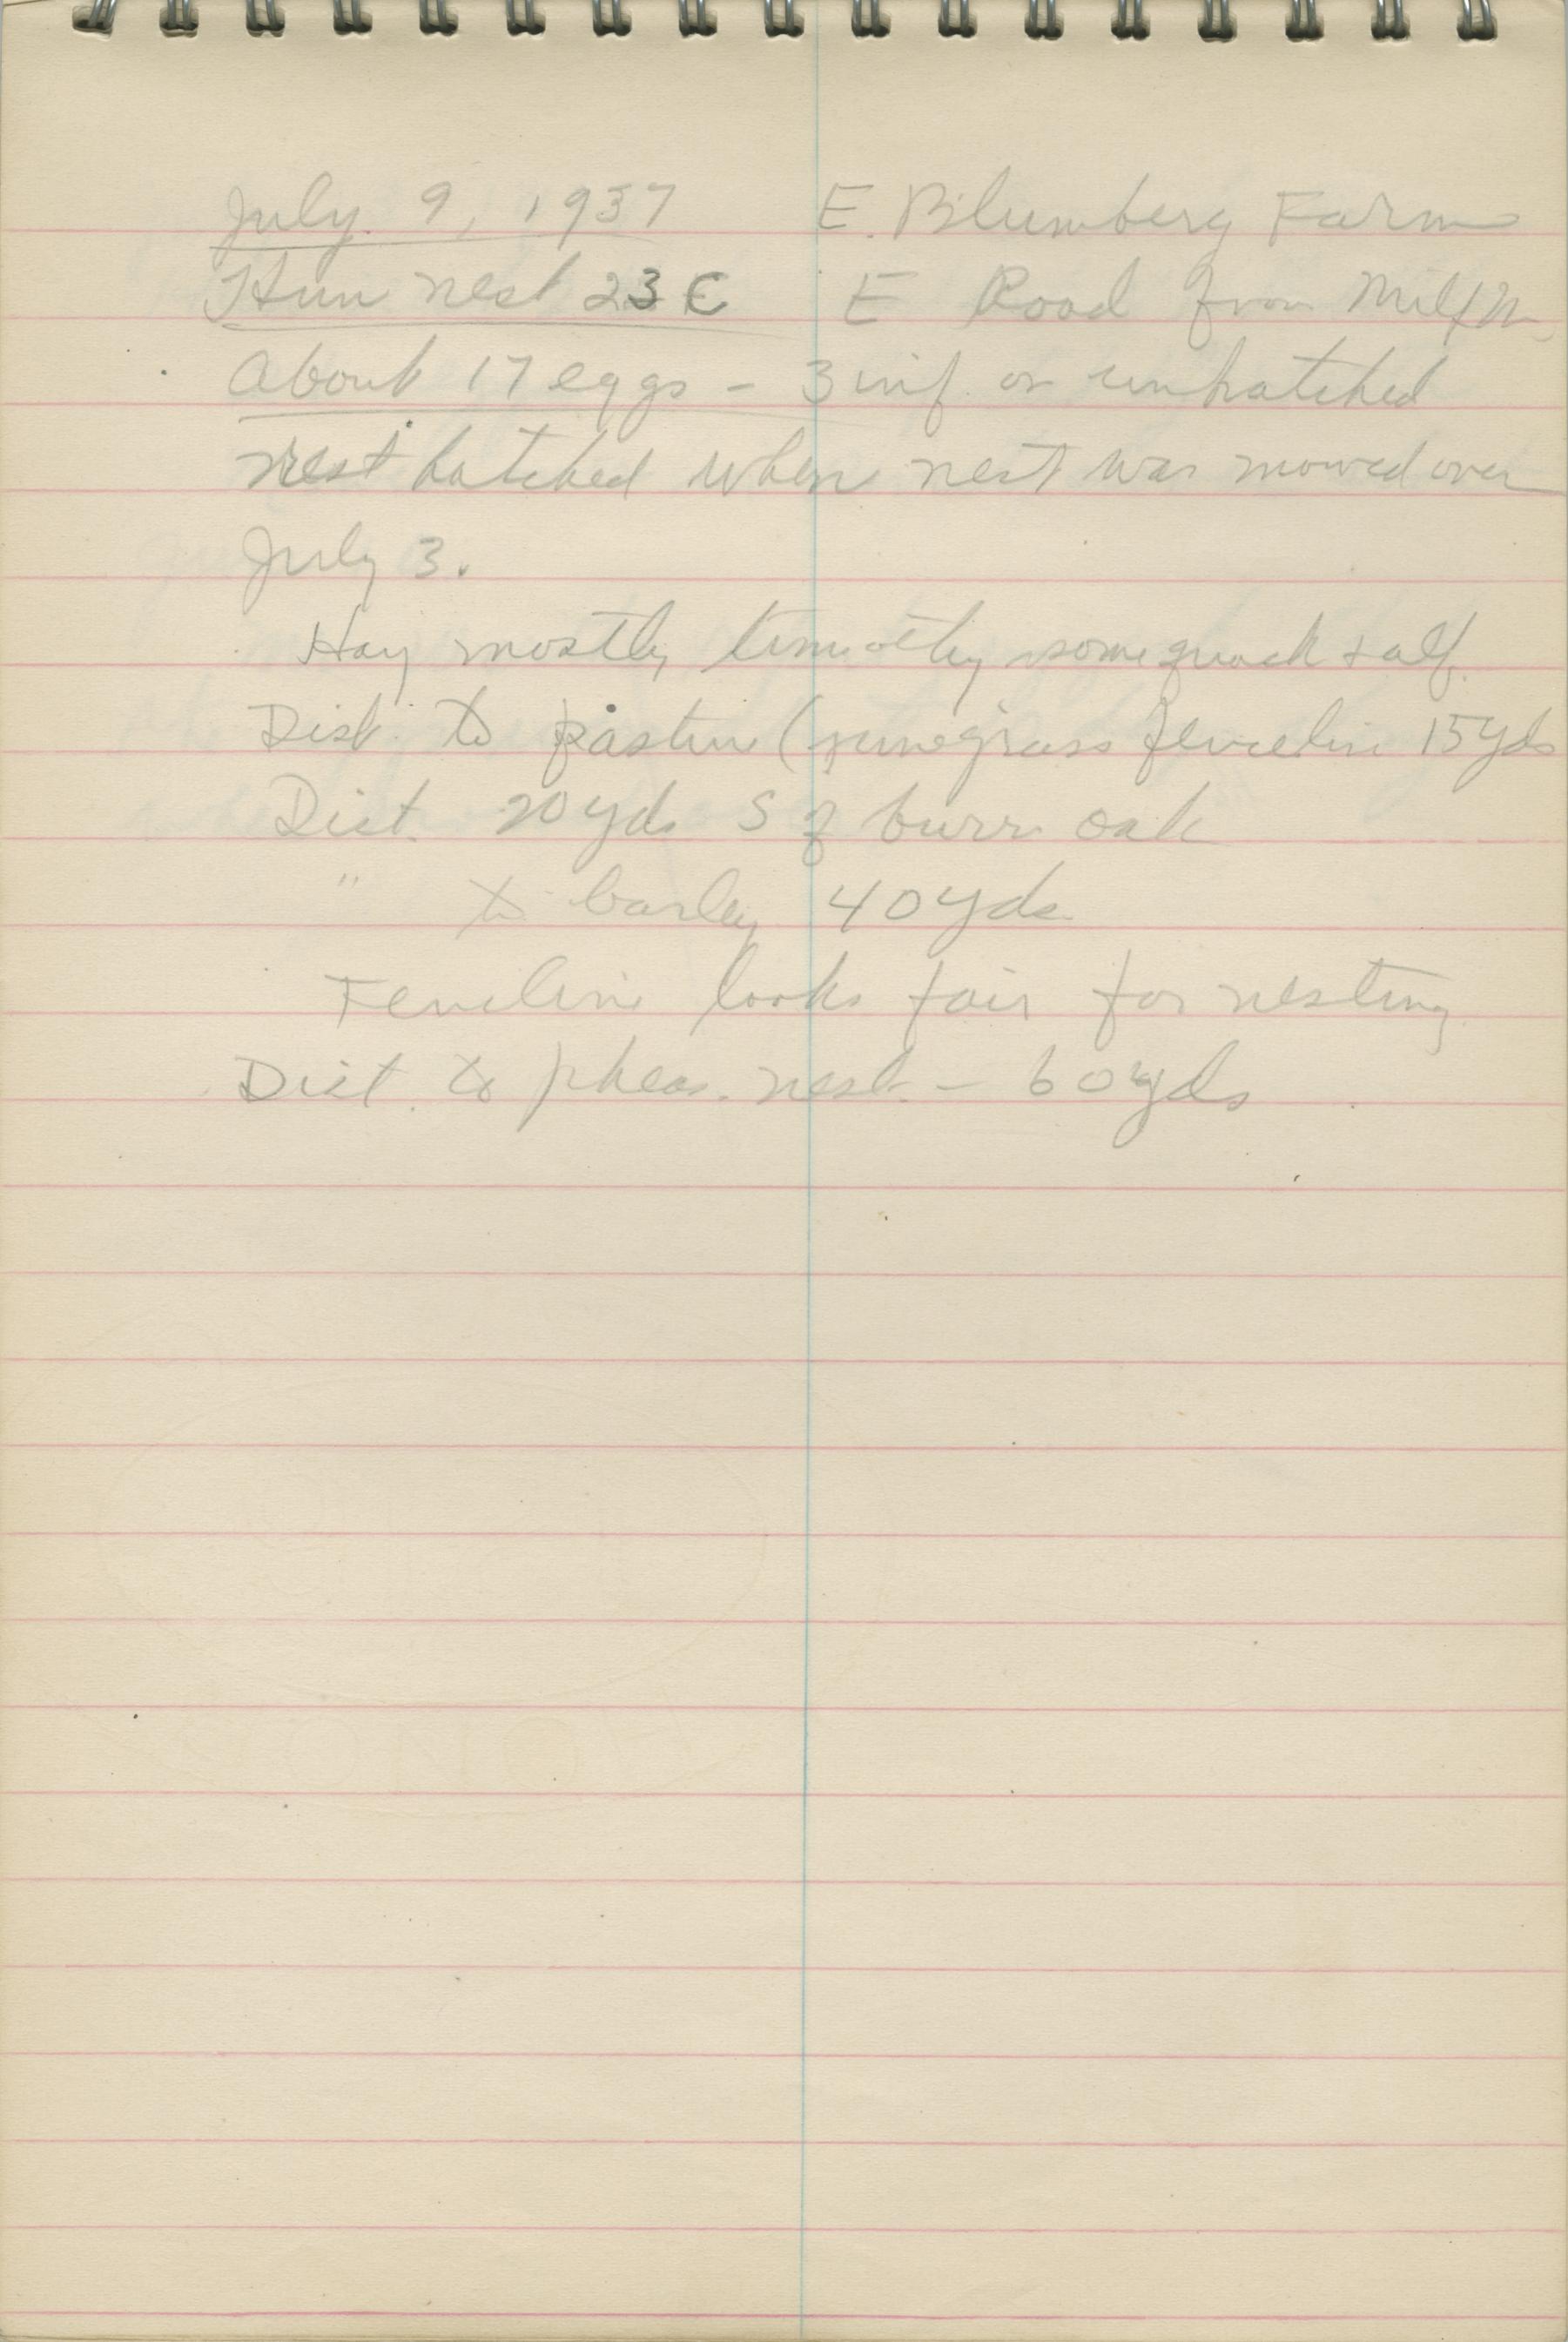 July 9, 1937 E. Blumberg Farm
Hun nest 23 E E Road from Milf
About 17 eggs - 3 inf. or unhatched
rest hatched when nest was mowed over
July 3.
Hay mostly timothy some quack + alf.
Dist. to pasture (Junegrass fenceline 15 yds
Dist. 20 yds S of burr oak
" to barley 40 yds.
Fenceline looks fair for nesting
Dist. to pheas. nest - 60 yds